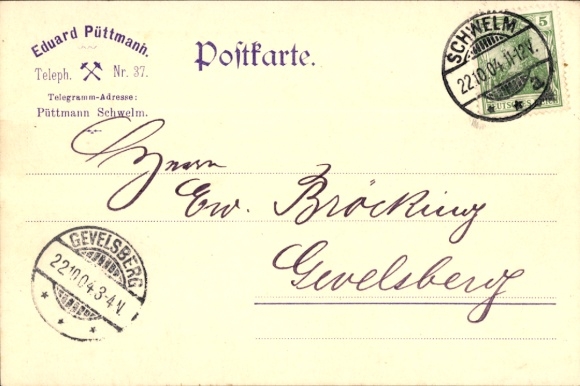 Eduard Püttmann.
Teleph. Nr. 37.
Telegramm-Adresse:
Püttmann Schwelm.
Postkarte.
5
SCHWELM
22.10.04.11-12V.
DEUTSCHES
Herrn
Ew. Bröcking
Gevelsberg
GEVELSBERG
22.10.04.3-4 V.